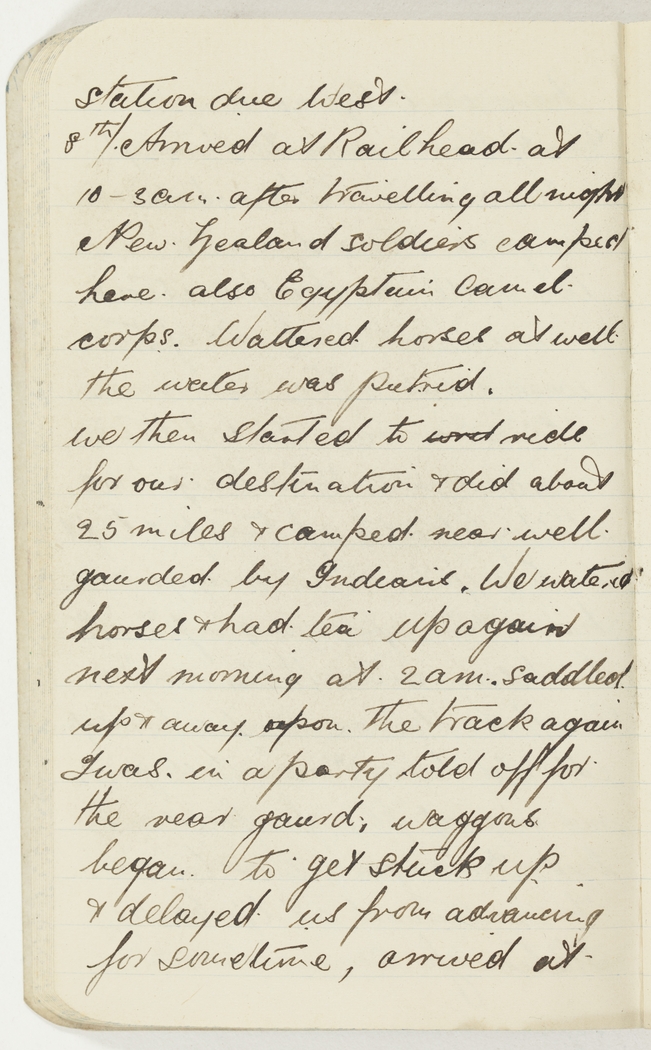 station due West.
8th/. Arrived at Railhead. at
10-3am. after travelling all night
New. Zealand soldiers camped
here. also Egyptain Camel.
corps. Wattered horses at well.
the water was putrid.
we then started to ride
for our destination & did about
25 miles & camped near well.
gaurded by Indians. We watered
horses & had tea up again
next morning at. 2am. saddled
up & away upon. the track again
I was. in a party told off for
the rear gaurd, waggons
began to get stuck up
& delayed us from advancing
for sometime, arrived at